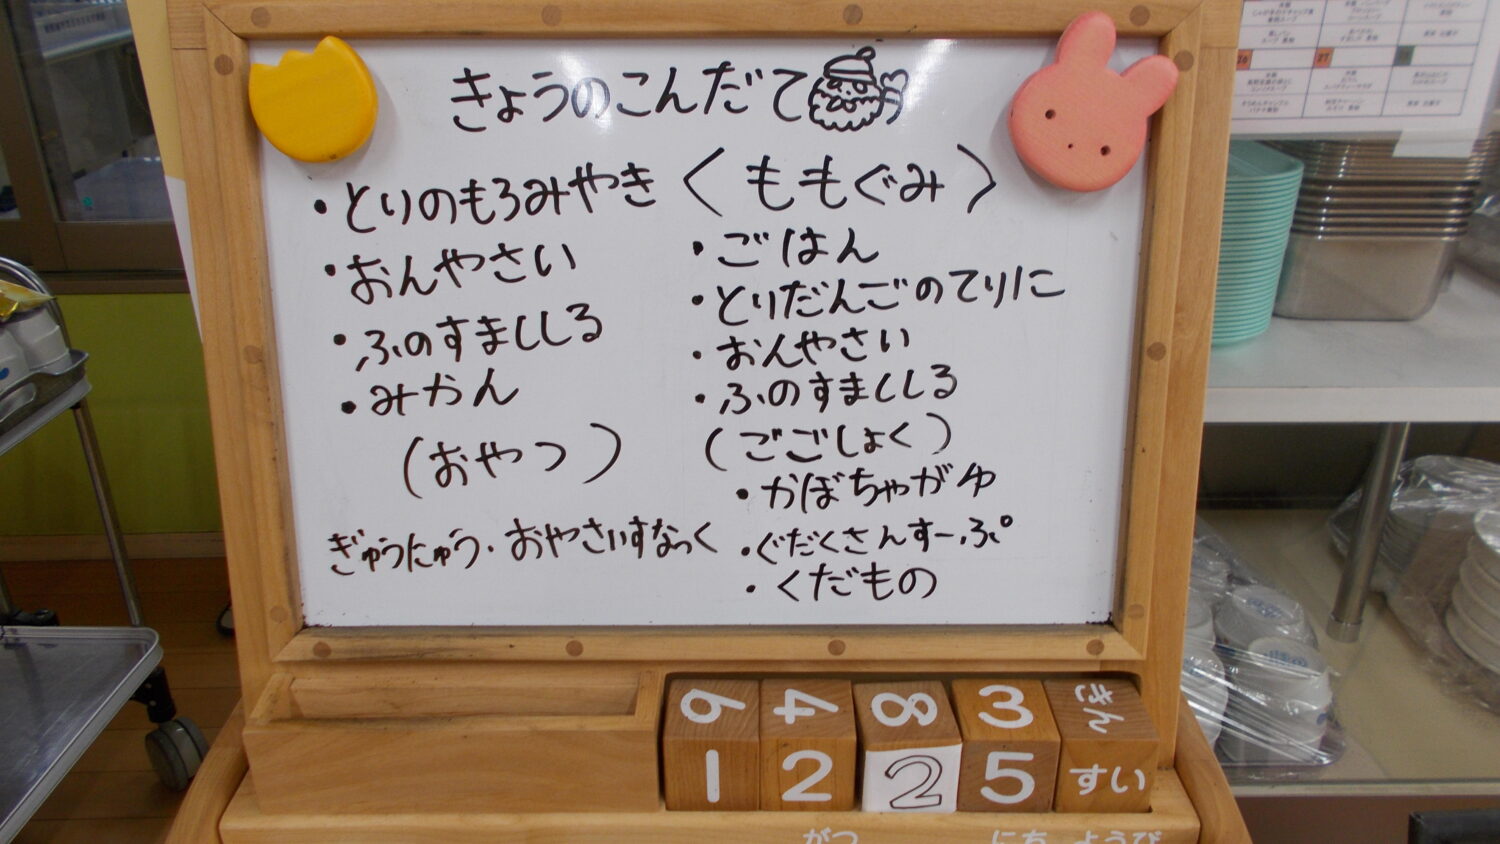 きょうのこんだて
・とりのもろみやき
・おんやさい
・ふのすましじる
・みかん
(おやつ)
ぎゅうにゅう・おやさいすなっく
〈ももぐみ〉
・ごはん
・とりだんごのてりに
・おんやさい
・ふのすましじる
(ごごしょく)
・かぼちゃがゆ
・ぐだくさんすーぷ
・くだもの
6 4 8 3 きん
1 2 2 5 すい
がつ にち ようび
26 27